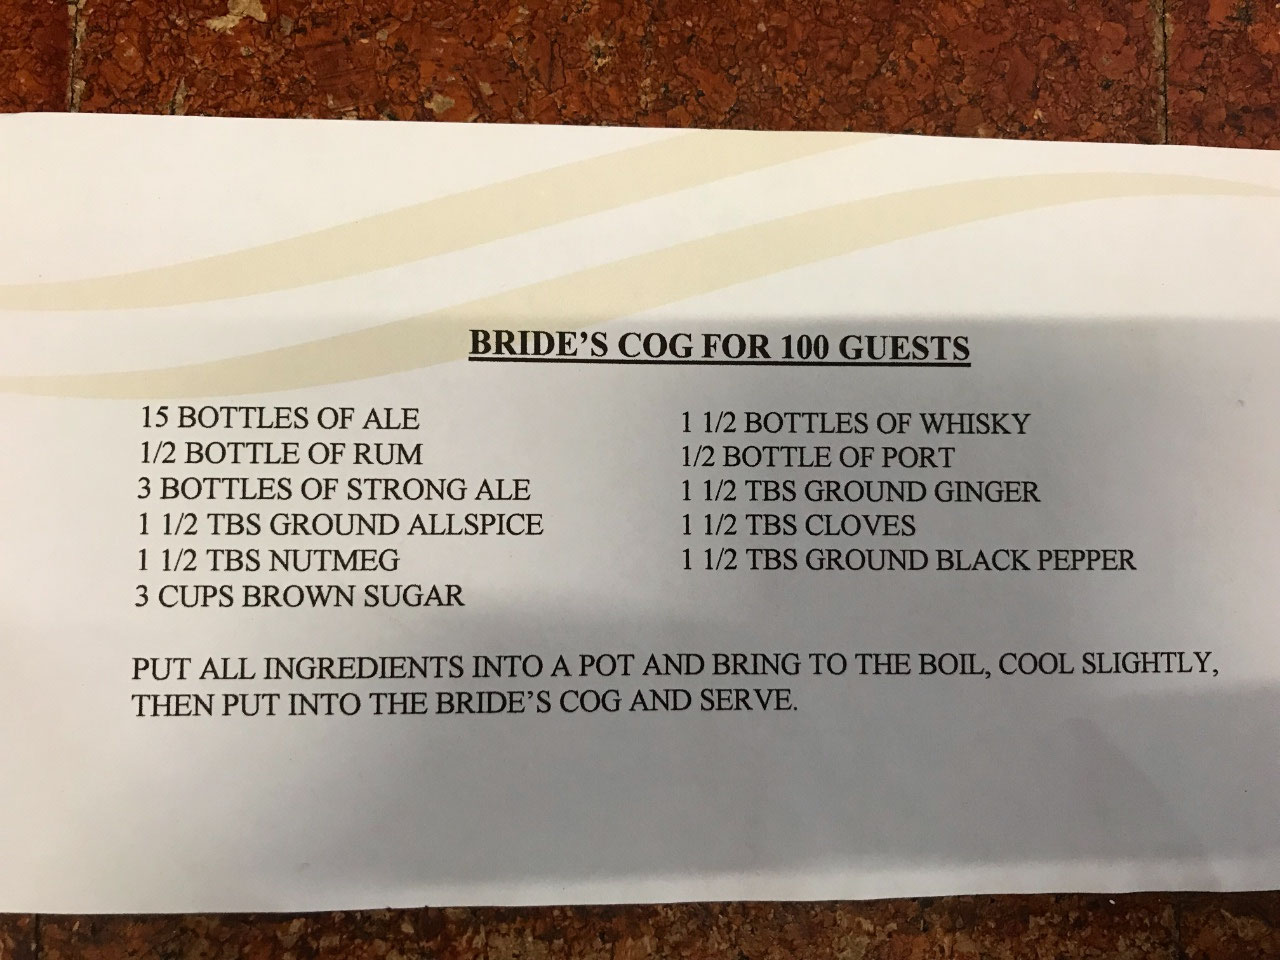 BRIDE'S COG FOR 100 GUESTS
15 BOTTLES OF ALE
1/2 BOTTLE OF RUM
3 BOTTLES OF STRONG ALE
1 1/2 TBS GROUND ALLSPICE
1 1/2 TBS NUTMEG
3 CUPS BROWN SUGAR
1 1/2 BOTTLES OF WHISKY
1/2 BOTTLE OF PORT
1 1/2 TBS GROUND GINGER
1 1/2 TBS CLOVES
1 1/2 TBS GROUND BLACK PEPPER
PUT ALL INGREDIENTS INTO A POT AND BRING TO THE BOIL, COOL SLIGHTLY,
THEN PUT INTO THE BRIDE'S COG AND SERVE.